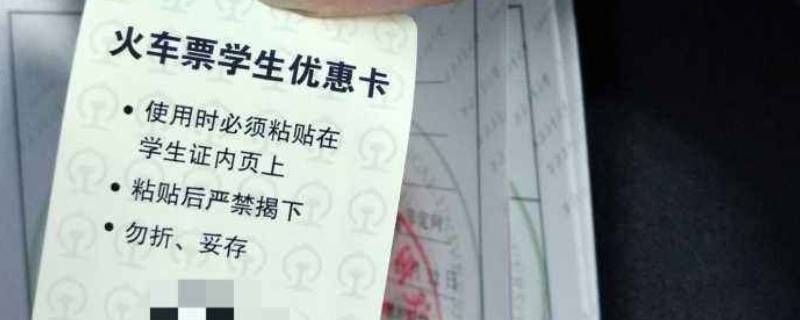 火车票学生优惠卡
• 使用时必须粘贴在
学生证内页上
• 粘贴后严禁揭下
• 勿折、妥存